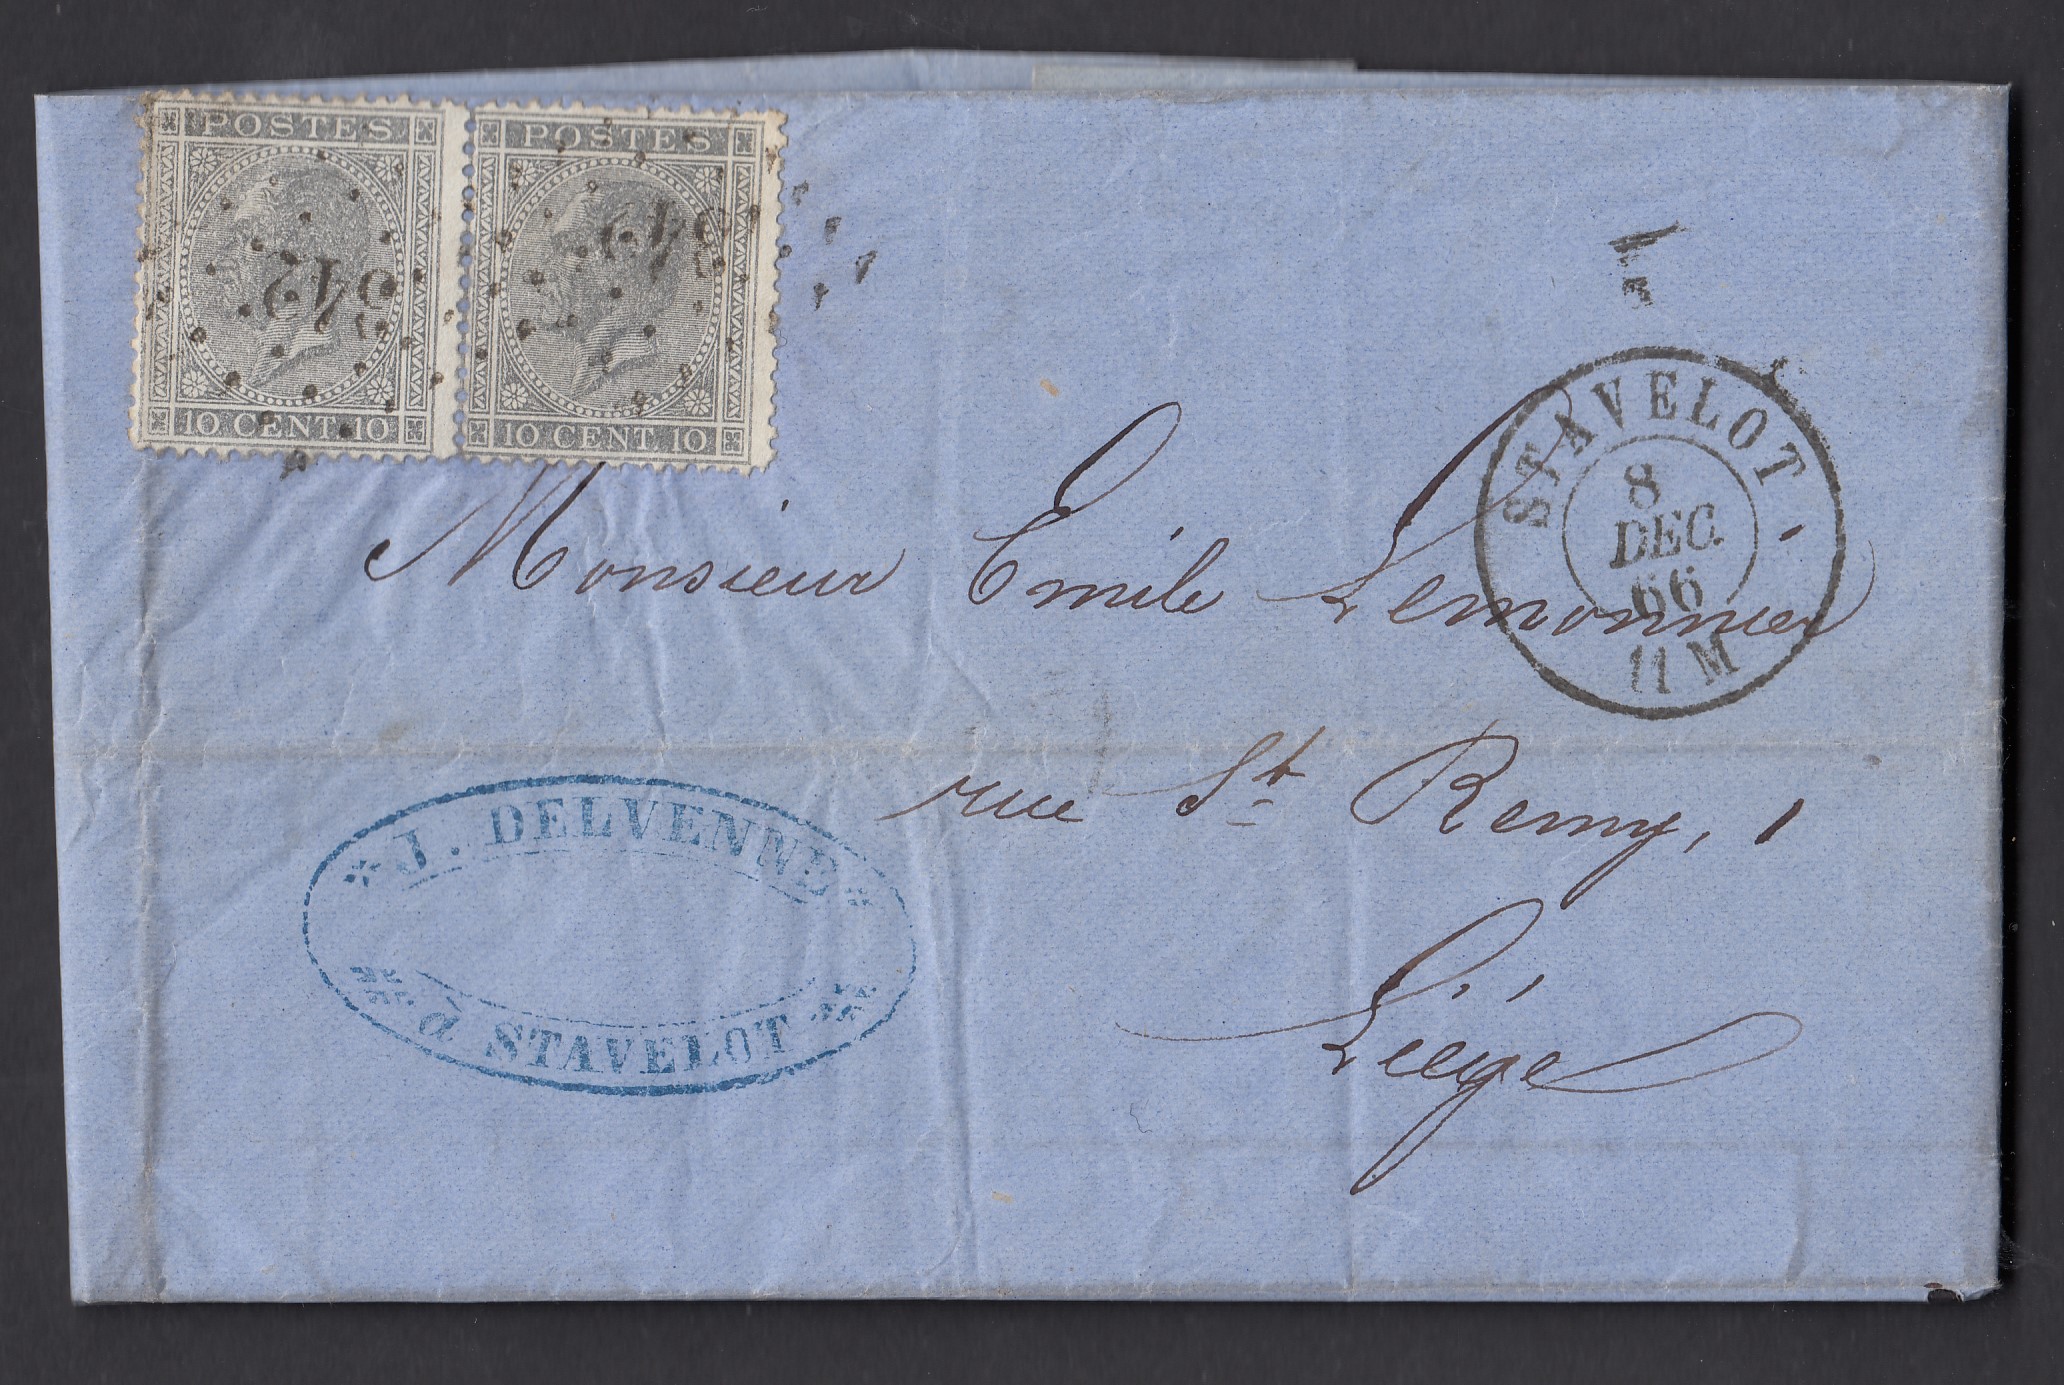 POSTES
10 CENT. 10
POSTES
10 CENT. 10
342
342
STAVELOT
8
DEC.
66
11 M
Monsieur Emile Lemonnier
rue St Remy, 1
Liége
J. DELVENNE
à STAVELOT